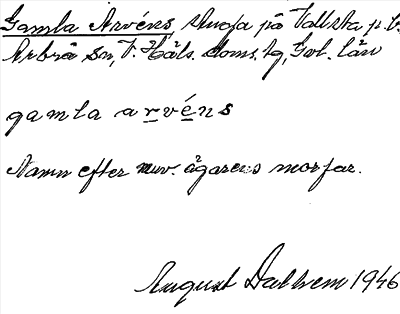 Gamla Arvéns, stuga på Vallsta p.
Arbrå sn, V. Häls. doms. tg, Gvl. län
gamla arvéns
Namn efter nuv. ägarens morfar.
August Dalhem 1946